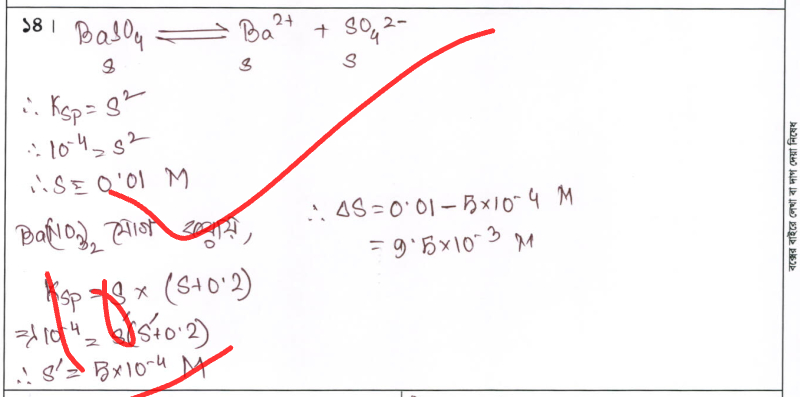 ১৪। BaSO₄ ⇌ Ba²⁺ + SO₄²⁻
S S S
∴ Ksp = S²
∴ 10⁻⁴ = S²
∴ S = 0.01 M
Ba(NO₃)₂ যোগ করায়,
Ksp = S × (S+0.2)
⇒ 10⁻⁴ = S'(S'+0.2)
∴ S' = 5×10⁻⁴ M
∴ ΔS = 0.01 − 5×10⁻⁴ M
= 9.5×10⁻³ M
বক্সের বাইরে লেখা বা দাগ দেয়া নিষেধ